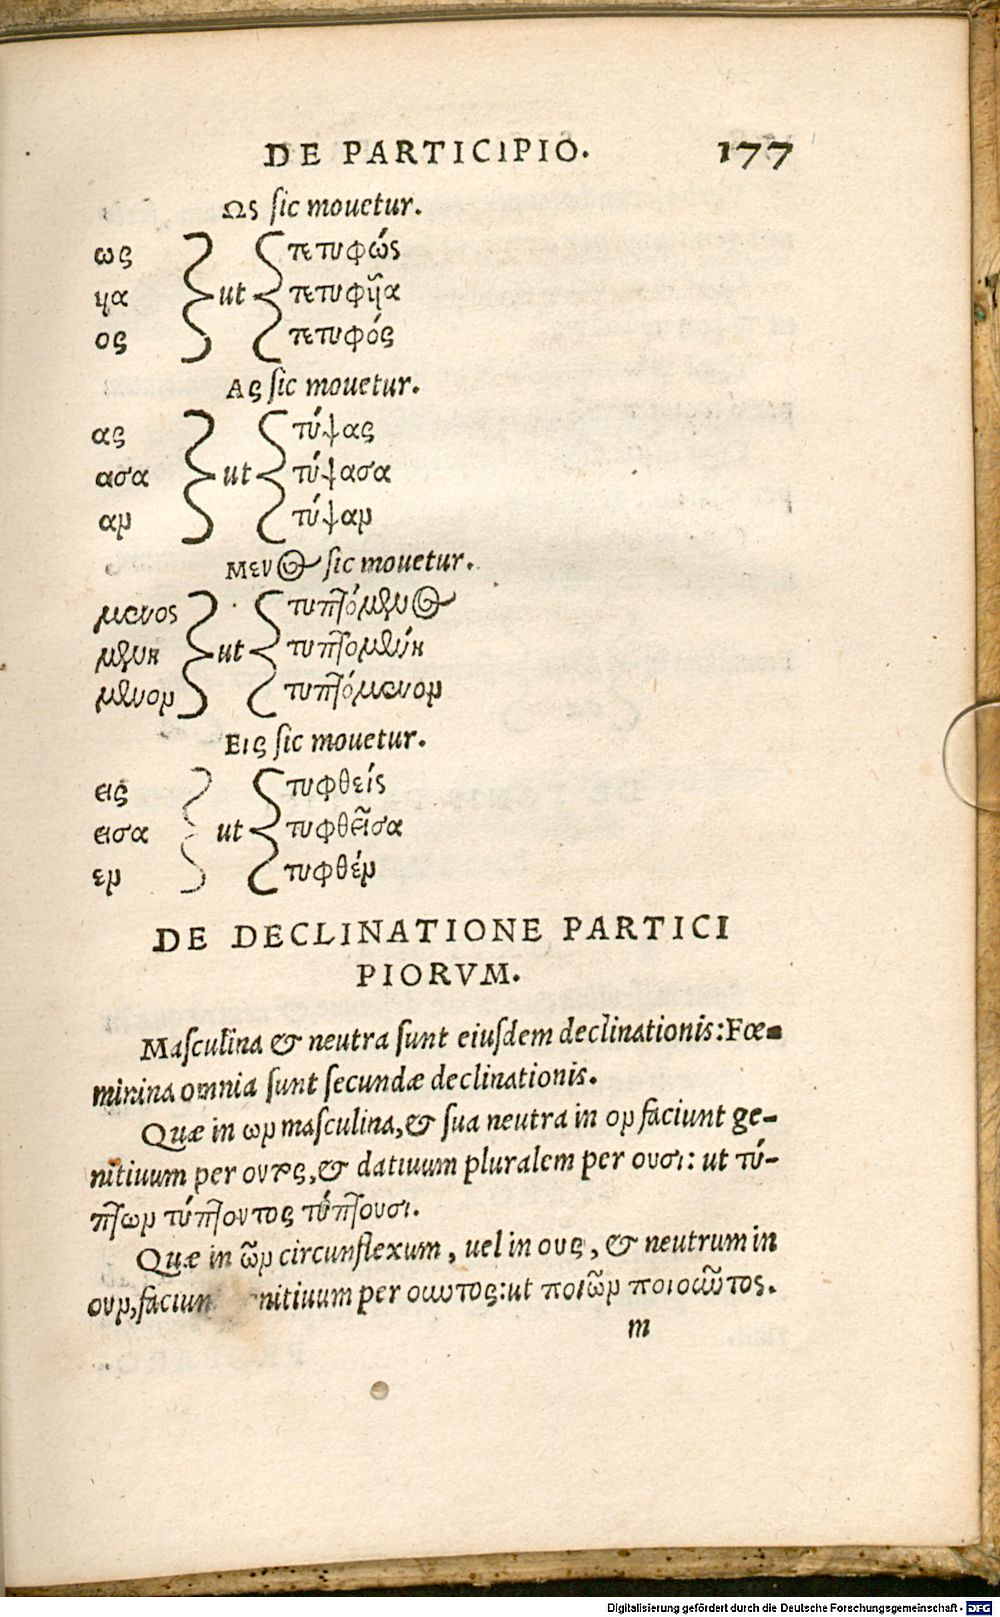 DE PARTICIPIO. 177
Ως sic mouetur.
ως τετυφώς
υα ut τετυφῦα
ος τετυφός
Ας sic mouetur.
ας τύψας
ασα ut τύψασα
αν τύψαν
Μενος sic mouetur.
μενος τυπτόμενος
μενη ut τυπτομένη
μενον τυπτόμενον
Εις sic mouetur.
εις τυφθείς
εισα ut τυφθεῖσα
εν τυφθέν
DE DECLINATIONE PARTICI
PIORVM.
Masculina & neutra sunt eiusdem declinationis: Fœ-
minina omnia sunt secundæ declinationis.
Quæ in ων masculina, & sua neutra in ον faciunt ge-
nitiuum per οντος, & datiuum pluralem per ουσι: ut τύ-
πτων τύπτοντος τύπτουσι.
Quæ in ῶν circunflexum, uel in ους, & neutrum in
ουν, faciun nitiuum per ουντος: ut ποιῶν ποιοῦντος.
m
Digitalisierung gefördert durch die Deutsche Forschungsgemeinschaft - DFG